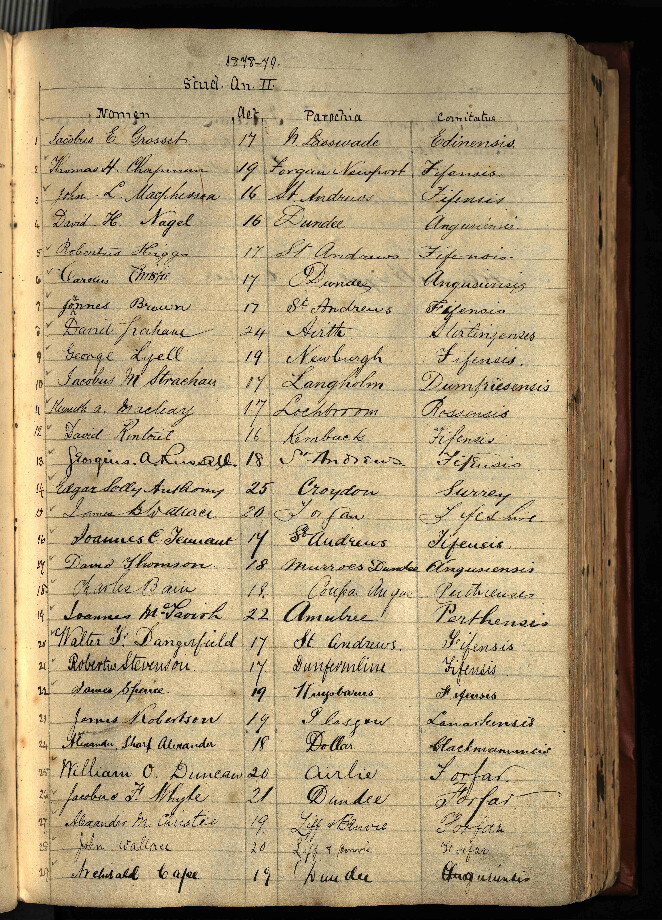 1878-79.
Stud. An. II.
Nomen Aet. Parochia Comitatus
1 Jacobus E. Grosset 17 Lasswade Edinensis.
2 Thomas H. Chapman 19 Forgan Newport Fifensis
3 John L. Macpherson 16 St. Andrews Fifensis
4 David H. Nagel 16 Dundee Angusiensis.
5 Robertus Higgs 17 St Andrews Fifensis.
6 Carolus Christie 17 Dundee Angusiensis
7 Joannes Brown 17 St Andrews Fifensis
8 David Grahame 24 Airth Sterlingensis
9 George Lyell 19 Newburgh Fifensis.
10 Jacobus M Strachan 17 Langholm Dumfriesensis
11 Kenneth A. Macleay 17 Lochbroom Rossensis
12 David 16 Kemback Fifensis
13 Georgius. A. Russell. 18 St Andrews Fifensis
14 Edgar Solly Anthony 25 Croydon Surrey
15 James B Wallace 20 Forgan Fifeshire
16 Joannes C. Tennant 17 St Andrews Fifensis.
17 David Thomson 18 Murroes Dundee Angusiensis
18 Charles Bain 18. Coupar Angus Perthensis
19 Joannes McTavish 22 Amulree Perthensis
20 Walter F. Dangerfield 17 St Andrews. Fifensis
21 Robertus Stevenson. 17 Dunfermline Fifensis
22 James Spence. 19 Kingsbarns Fifensis
23 James Robertson 19 Glasgow Lanarkensis
24 Alexander Sharp Alexander 18 Dollar Clackmannensis
25 William O. Duncan 20 Airlie Forfar.
26 Jacobus F. Whyte 21 Dundee Forfar
27 Alexander M. Christie 19 Liff & Benvie Forfar
28 John Wallace 20 Liff & Benvie Forfar
29 Archibald Cape 19 Dundee Angusiensis